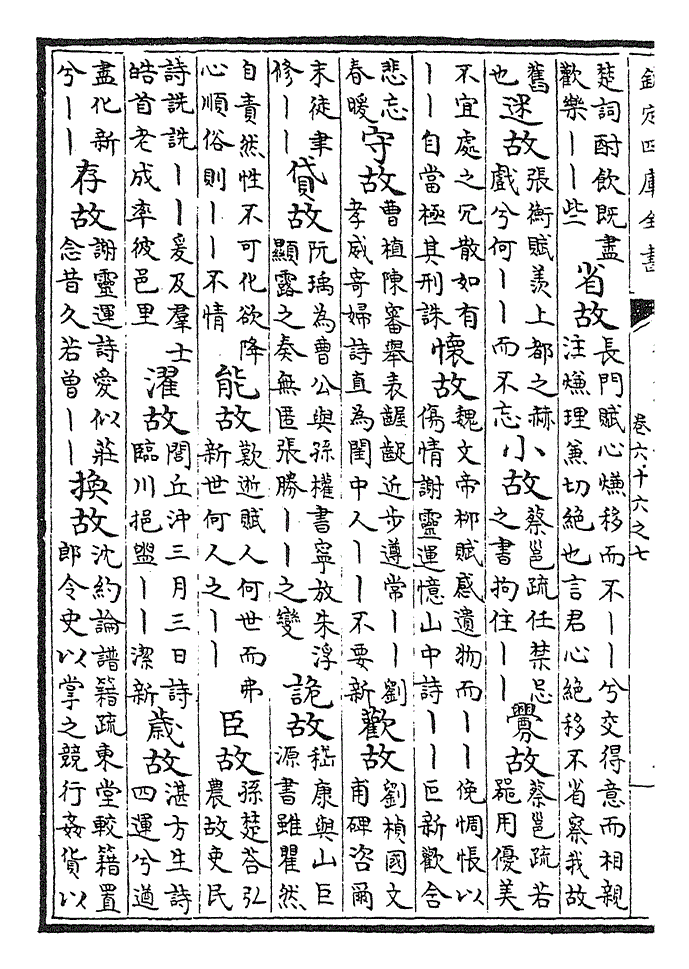 欽定四庫全書
卷六十六之七
楚詞酎飲既盡
歡樂丨丨些
省故
長門賦心慊移而不丨丨兮交得意而相親
注慊理兼切絶也言君心絶移不省察我故
舊
也
迷故
張衡賦羨上都之赫
戲兮何丨丨而不忘
小故
蔡邕疏任禁忌
之書拘住丨丨
釁故
蔡邕疏若
器用優美
不宜處之冗散如有
丨丨自當極其刑誅
懷故
魏文帝柳賦感遺物而丨丨俛惆悵以
傷情謝靈運憶山中詩丨丨叵新歡含
悲忘
春暖
守故
曹植陳審舉表齷齪近步遵常丨丨劉
孝威寄婦詩直為閨中人丨丨不要新
歡故
劉楨國文
甫碑咨爾
末徒聿
修丨丨
貸故
阮瑀為曹公與孫權書寧放朱浮
顯露之奏無匿張勝丨丨之變
詭故
嵇康與山巨
源書雖瞿然
自責然性不可化欲降
心順俗則丨丨不情
能故
歎逝賦人何世而弗
新世何人之丨丨
臣故
孫楚荅弘
農故吏民
詩詵詵丨丨爰及羣士
皓首老成率彼邑里
濯故
閭丘沖三月三日詩
臨川挹盥丨丨潔新
歲故
湛方生詩
四運兮遒
盡化新
兮丨丨
存故
謝靈運詩愛似莊
念昔久若曾丨丨
換故
沈約論譜籍疏東堂較籍置
郎令史以掌之競行姦貨以